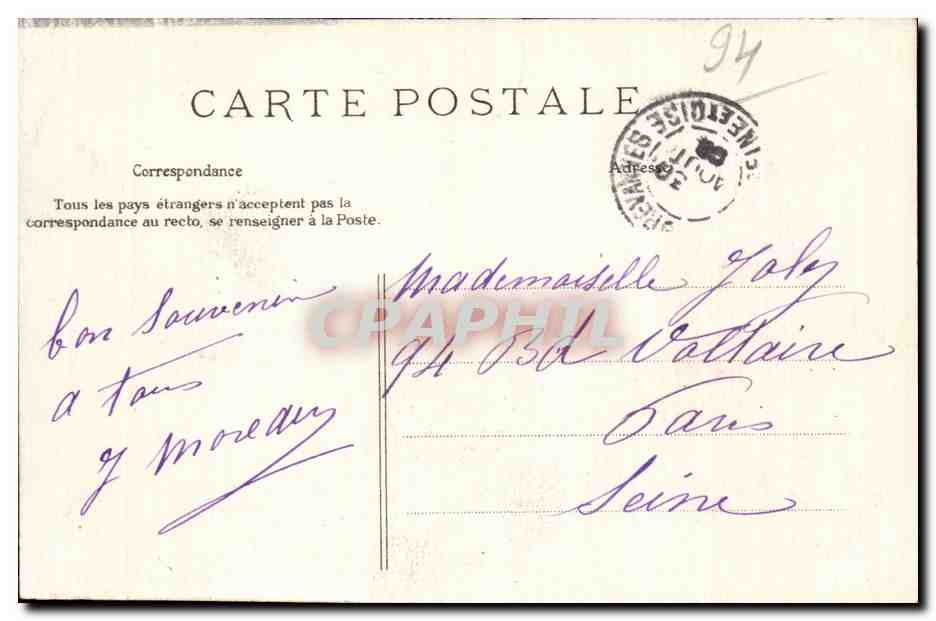 94
CARTE POSTALE
Correspondance
Adresse
Tous les pays étrangers n'acceptent pas la
correspondance au recto, se renseigner à la Poste.
BREVANNES SEINE ET OISE
30
AOUT
CPAPHIL
bon Souvenir
a tous
J
Mademoiselle Joly
94 Bd Voltaire
Paris
Seine